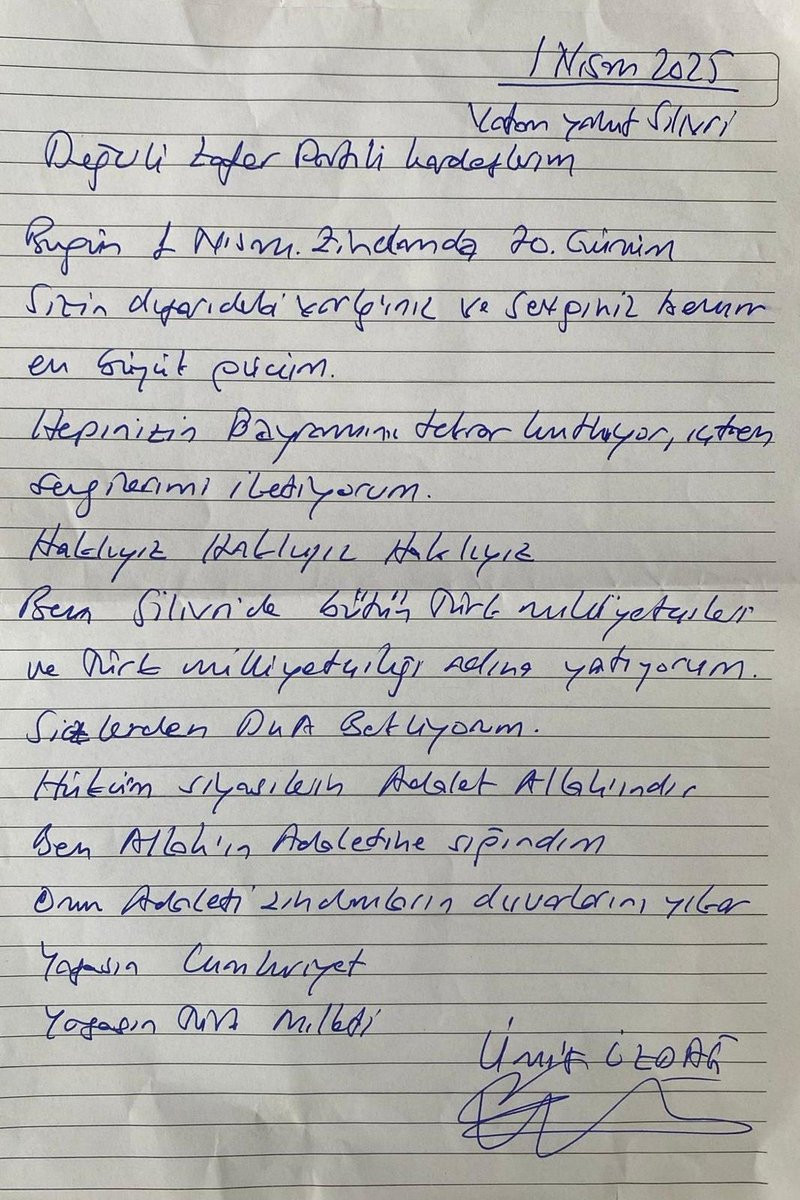 1 Nisan 2025
Vatan yahut Silivri
Değerli Zafer Partili kardeşlerim
Bugün 1 Nisan. Zindanda 70. Günüm
Sizin dışarıdaki varlığınız ve sevginiz benim
en büyük gücüm.
Hepinizin Bayramını tekrar kutluyor, içten
sevgilerimi iletiyorum.
Haklıyız Haklıyız Haklıyız
Ben Silivri'de bütün Türk milliyetçileri
ve Türk milliyetçiliği adına yatıyorum.
Sizlerden DuA Bekliyorum.
Hüküm siyasilerin Adalet Allah'ındır
Ben Allah'ın Adaletine sığındım
Onun Adaleti zindanların duvarlarını yıkar
Yaşasın Cumhuriyet
Yaşasın Türk Milleti
Ümit ÖZDAĞ